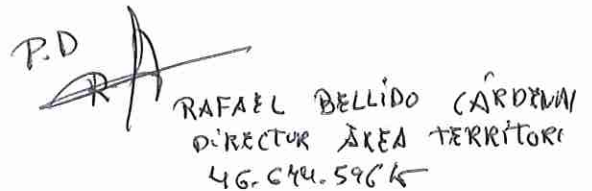 P.D
R.
RAFAEL BELLIDO CÁRDENAI
DIRECTOR ÀREA TERRITORI
46.644.596K